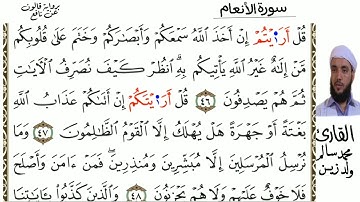 سورة الأنعام
رواية قالون
عن نافع
قُلْ أَرَٰٓيْتُمُۥٓ إِنْ أَخَذَ اَللَّهُ سَمْعَكُمْ وَأَبْصَٰرَكُمْ وَخَتَمَ عَلَىٰ قُلُوبِكُم
مَّنْ إِلَٰهٌ غَيْرُ اُللَّهِ يَأْتِيكُم بِهِۗ اِنظُرْ كَيْفَ نُصَرِّفُ اُلْأٓيَٰتِ
ثُمَّ هُمْ يَصْدِفُونَ ٤٦ قُلْ أَرَٰٓيْتَكُمُۥٓ إِنْ أَتَىٰكُمْ عَذَابُ اُللَّهِ
بَغْتَةً أَوْ جَهْرَةً هَلْ يُهْلَكُ إِلَّا اَلْقَوْمُ اُلظَّٰلِمُونَ ٤٧ وَمَا
نُرْسِلُ اُلْمُرْسَلِينَ إِلَّا مُبَشِّرِينَ وَمُنذِرِينَۖ فَمَنْ ءَامَنَ وَأَصْلَحَ
فَلَا خَوْفٌ عَلَيْهِمْ وَلَا هُمْ يَحْزَنُونَ ٤٨ وَالَّذِينَ كَذَّبُوا۟ بِـَٔايَٰتِنَا
القارئ
محمد سالم
ولد زين